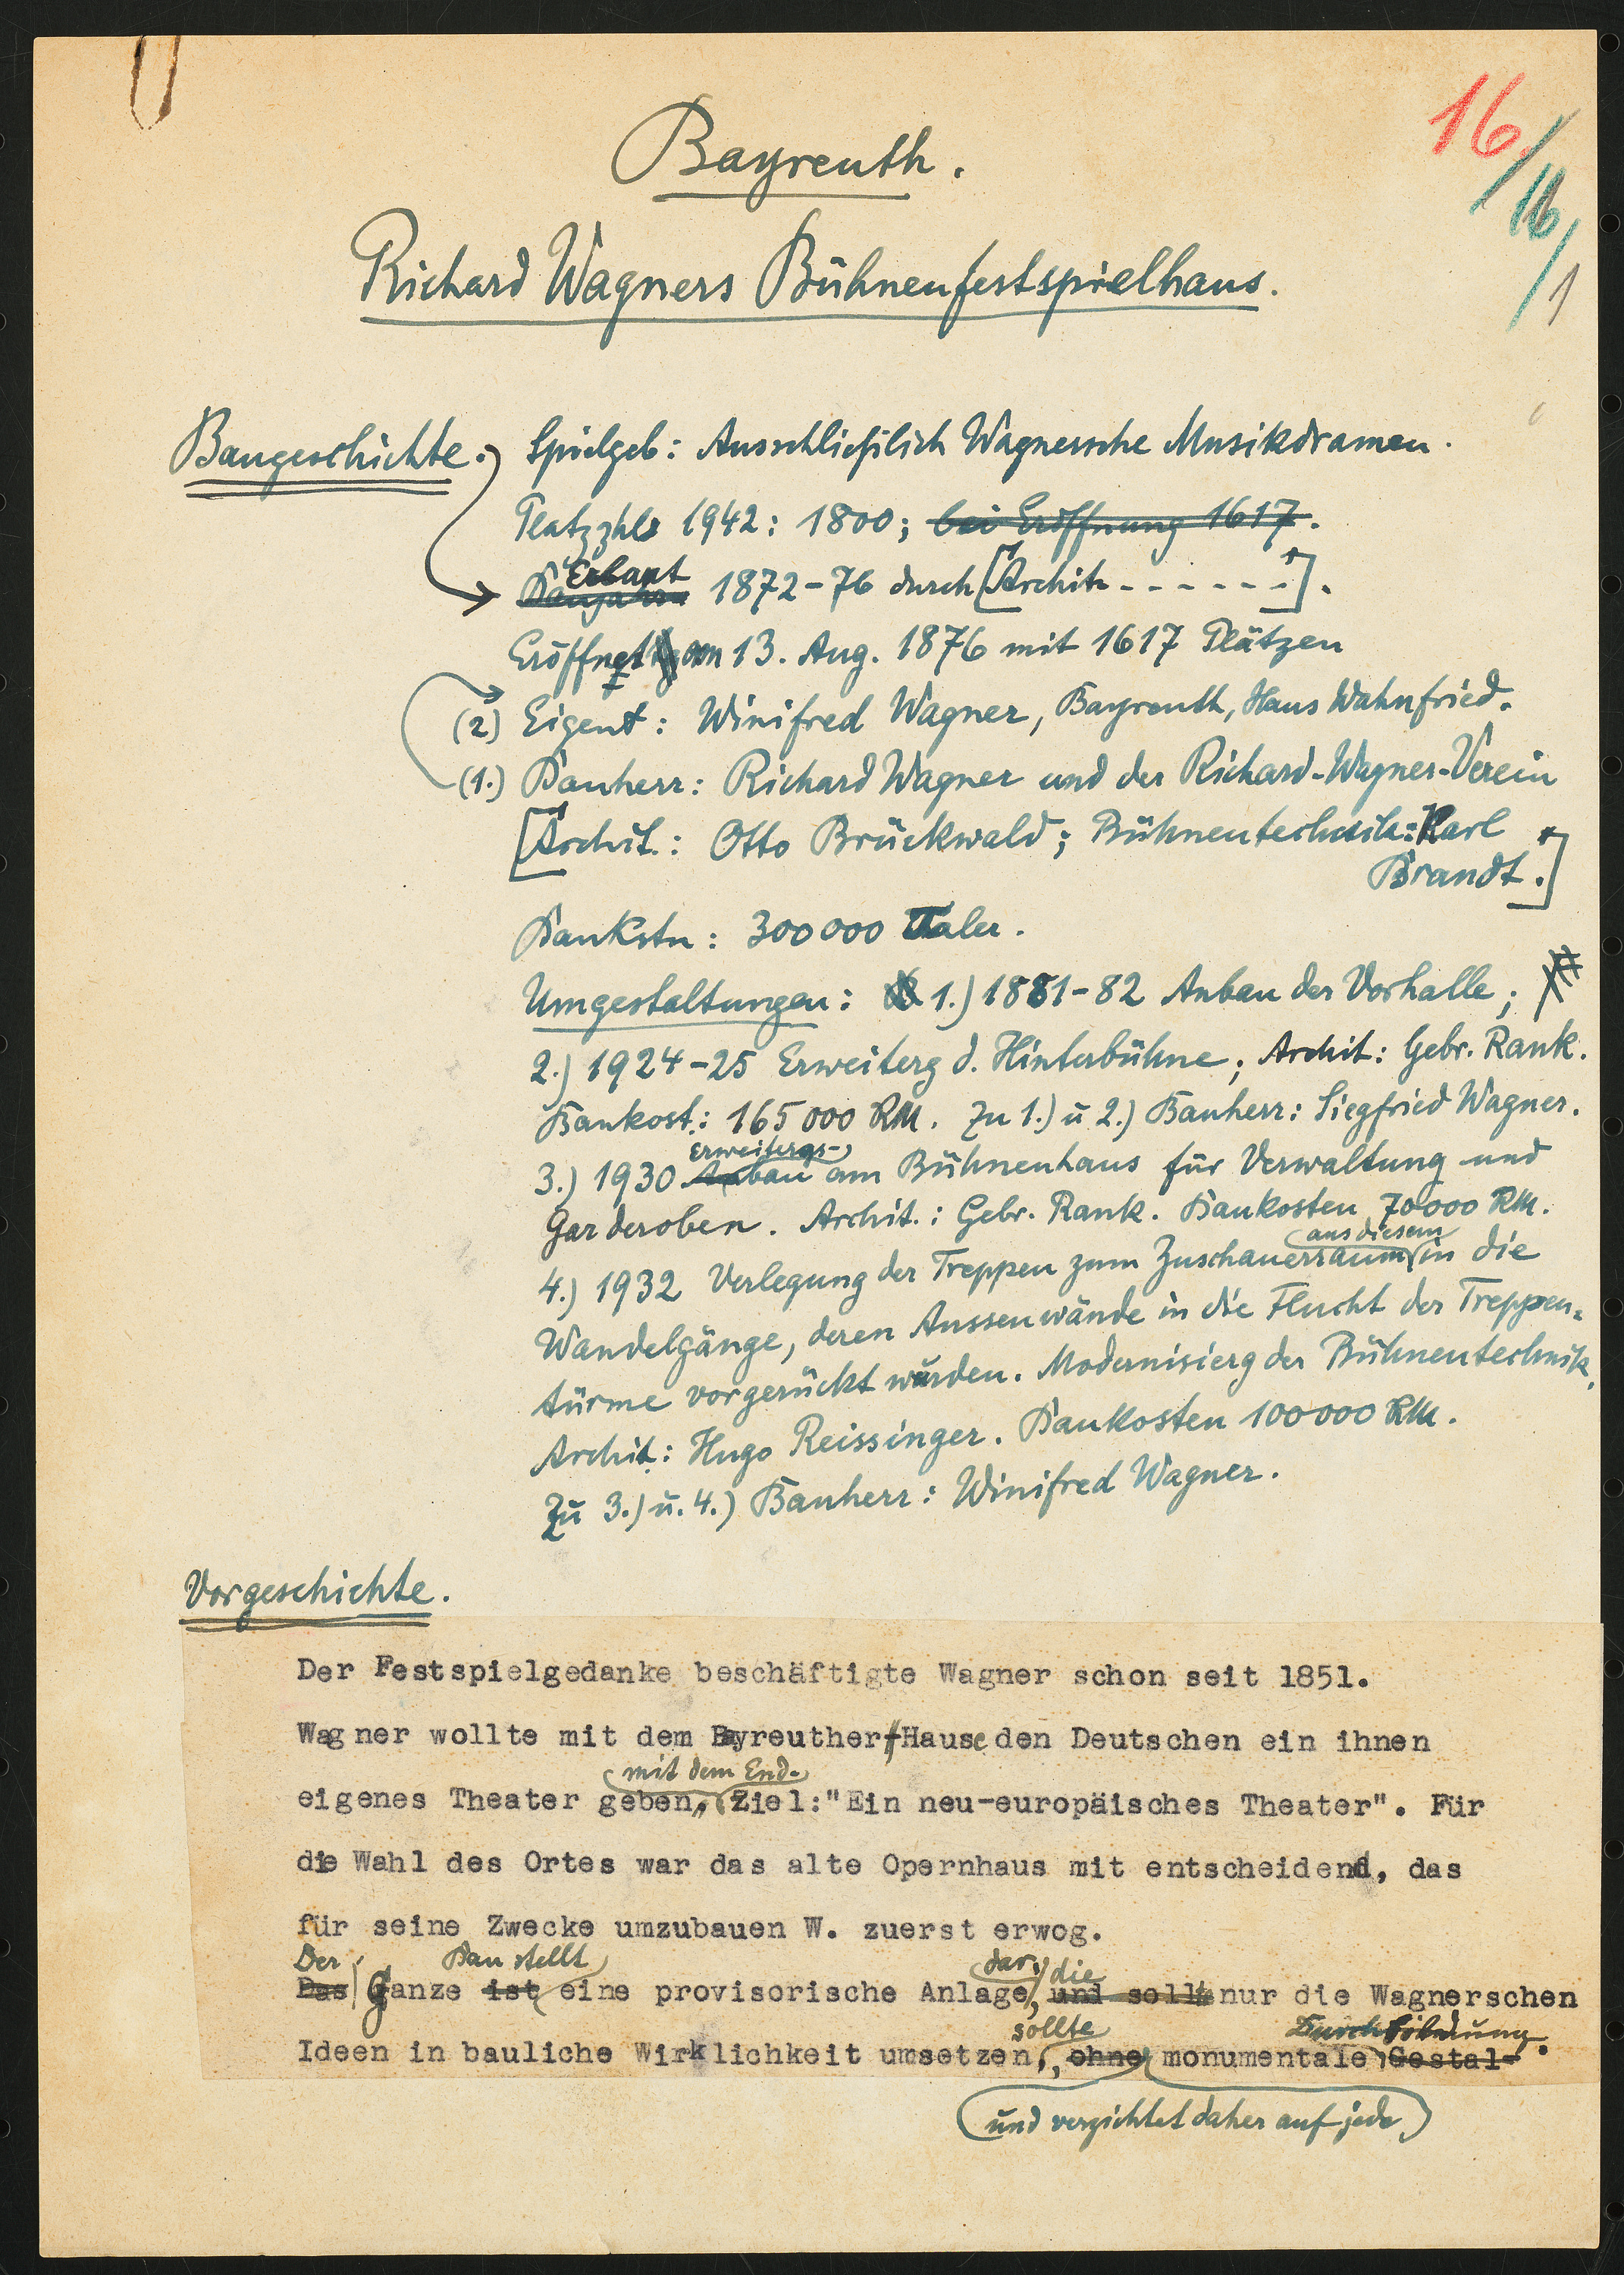 16./16/1
Bayreuth.
Richard Wagners Bühnenfestspielhaus.
Baugeschichte. Spielgeb: Ausschließlich Wagnersche Musikdramen.
Platzzhl 1942: 1800; bei Eröffnung 1617.
Erbaut
Baujahre 1872-76 durch [Archit. - - - - - -].
Eröffnet am 13. Aug. 1876 mit 1617 Plätzen
(2) Eigent: Winifred Wagner, Bayreuth, Haus Wahnfried.
(1.) Bauherr: Richard Wagner und der Richard-Wagner-Verein
[Archit.: Otto Brückwald; Bühnentechnik: Karl
Brandt.]
Baukstn: 300000 Taler.
Umgestaltungen: 1.) 1881-82 Anbau der Vorhalle;
2.) 1924-25 Erweiterg d. Hinterbühne; Archit: Gebr. Rank.
Baukost.: 165000 RM. Zu 1.) u 2.) Bauherr: Siegfried Wagner.
Erweitergs-
3.) 1930 Anbau am Bühnenhaus für Verwaltung und
Garderoben. Archit.: Gebr. Rank. Baukosten 70000 RM.
aus diesem
4.) 1932 Verlegung der Treppen zum Zuschauerraum in die
Wandelgänge, deren Aussenwände in die Flucht der Treppen-
türme vorgerückt wurden. Modernisierg der Bühnentechnik.
Archit.: Hugo Reissinger. Baukosten 100000 RM.
Zu 3.) u. 4.) Bauherr: Winifred Wagner.
Vorgeschichte.
Der Festspielgedanke beschäftigte Wagner schon seit 1851.
Wagner wollte mit dem Bayreuther Hause den Deutschen ein ihnen
mit dem End-
eigenes Theater geben, Ziel:"Ein neu-europäisches Theater". Für
die Wahl des Ortes war das alte Opernhaus mit entscheidend, das
für seine Zwecke umzubauen W. zuerst erwog.
Der Bau stellt dar, die
Das Ganze ist eine provisorische Anlage, und sollte nur die Wagnerschen
sollte Durchbildung.
Ideen in bauliche Wirklichkeit umsetzen, ohne monumentale Gestal-
und verzichtet daher auf jede